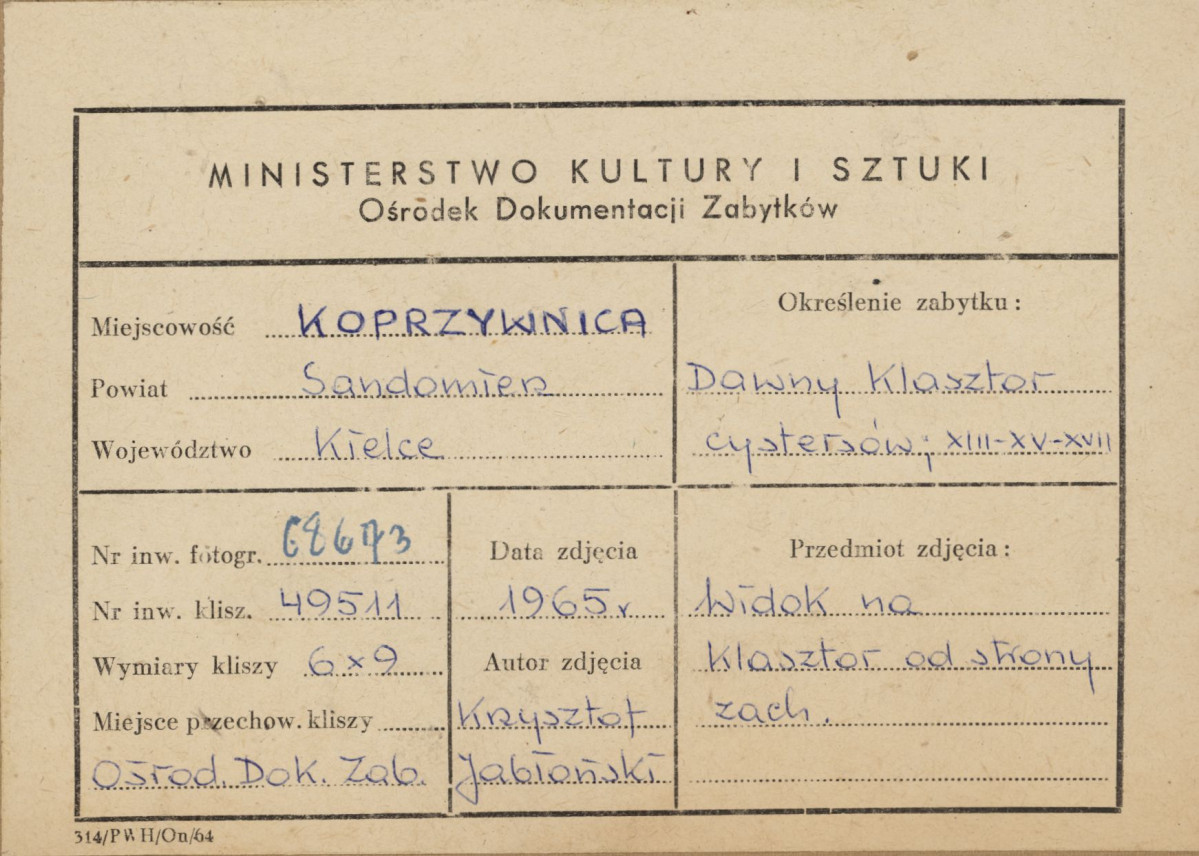 MINISTERSTWO KULTURY I SZTUKI
Ośrodek Dokumentacji Zabytków
Miejscowość KOPRZYWNICA
Powiat Sandomierz
Województwo Kielce
Określenie zabytku:
Dawny Klasztor
cystersów; XIII-XV-XVII
Nr inw. fotogr. 68673
Nr inw. klisz. 49511
Wymiary kliszy 6x9
Miejsce przechow. kliszy
Ośrod. Dok. Zab.
Data zdjęcia
1965r
Autor zdjęcia
Krzysztof
Jabłoński
Przedmiot zdjęcia:
Widok na
Klasztor od strony
zach.